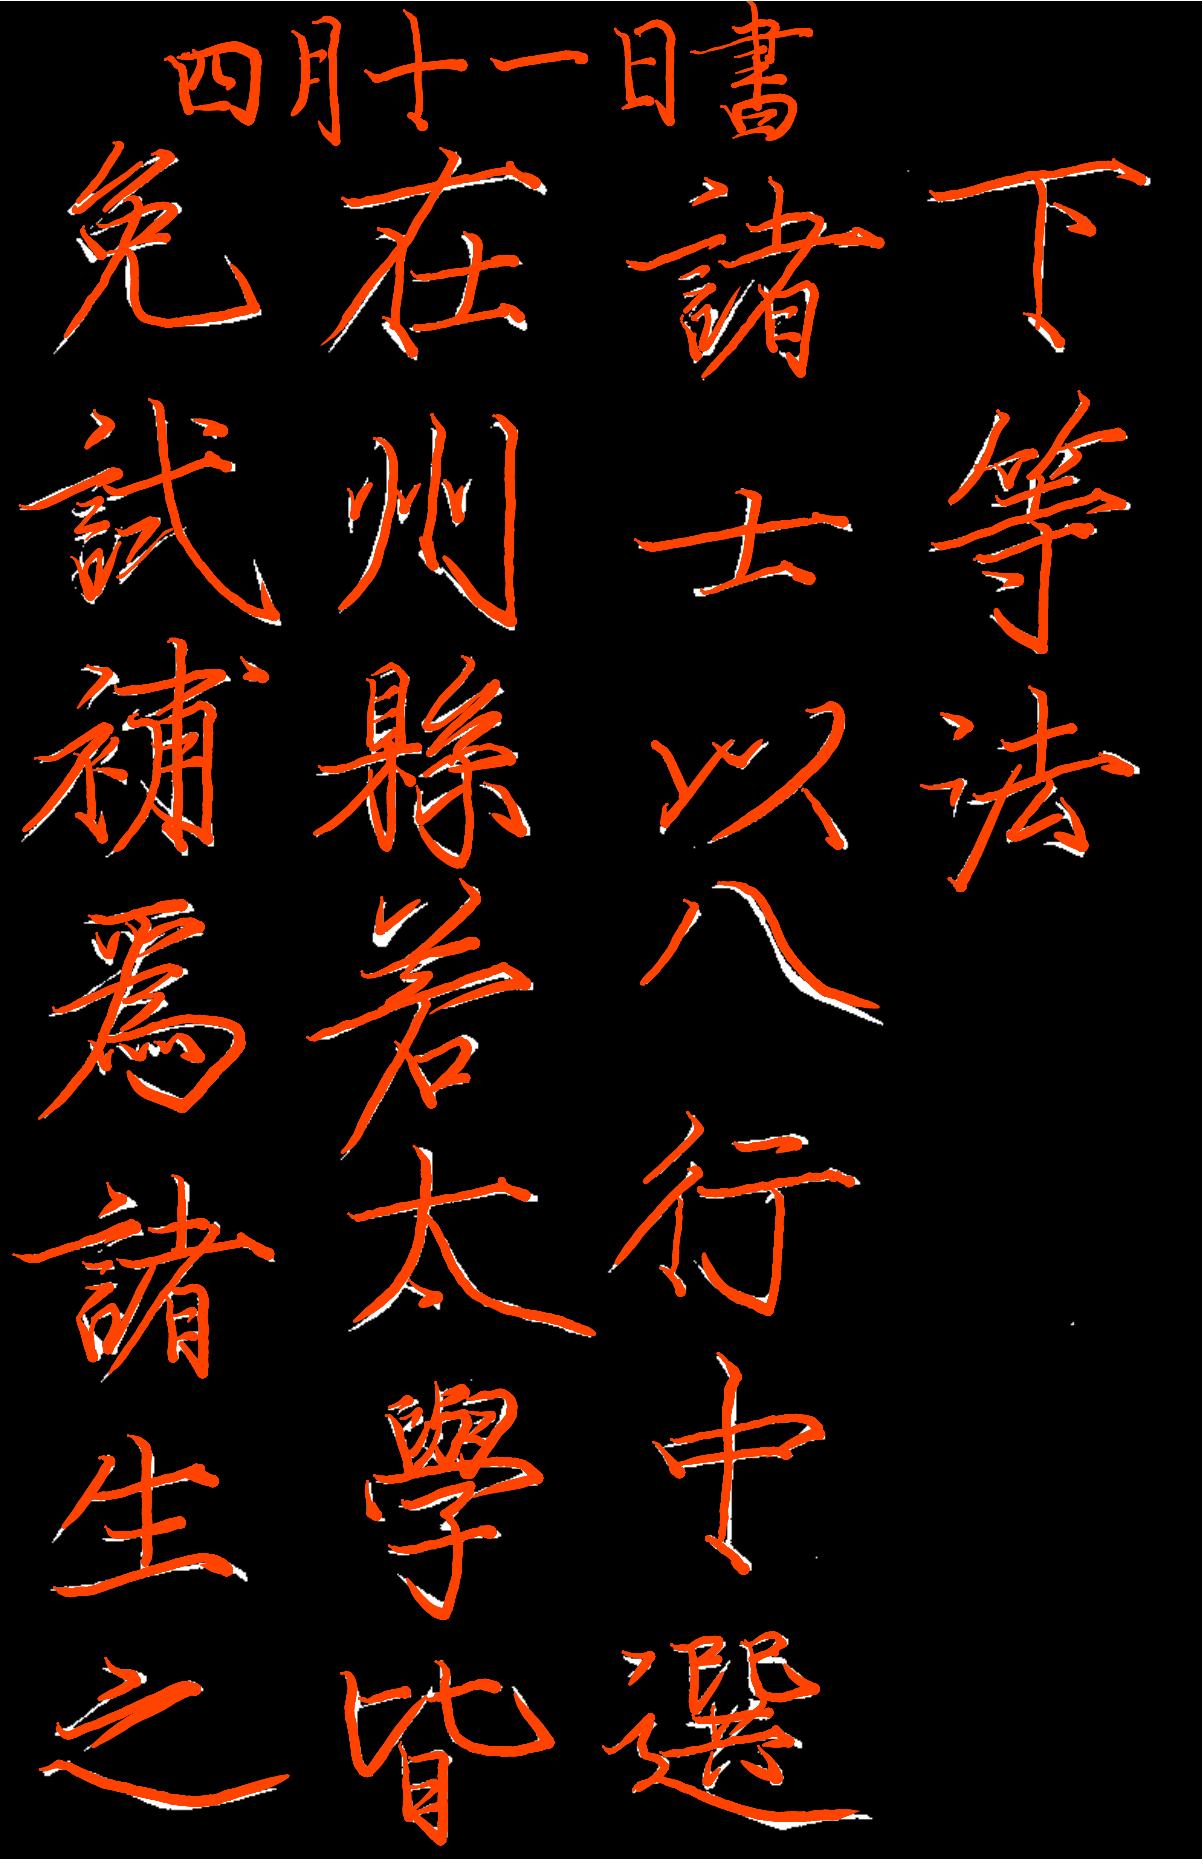 四月十一日書
下等法
諸士以八行中選
在州縣若太學皆
免試補爲諸生之